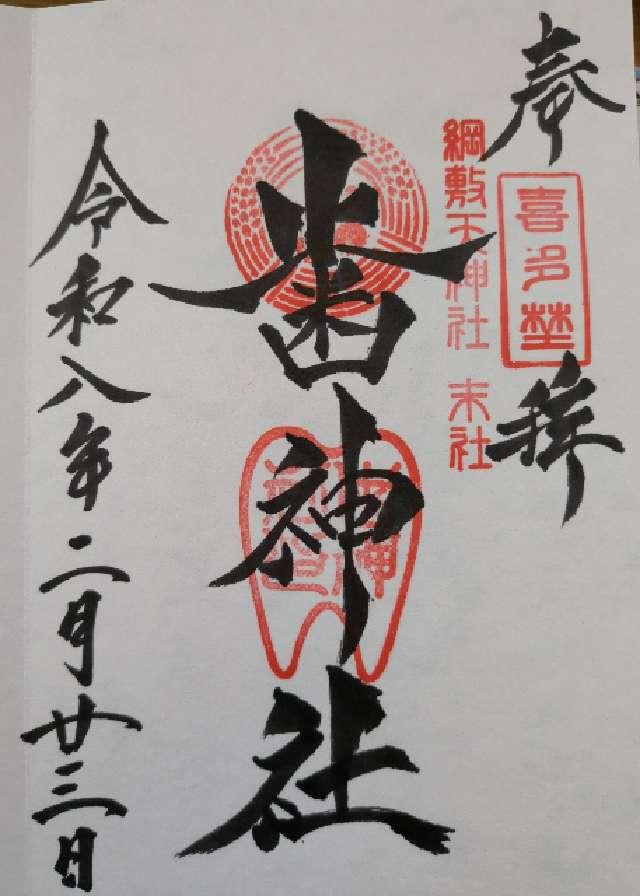 奉拝
喜多埜
綱敷天神社 末社
歯神社
令和八年二月廿三日